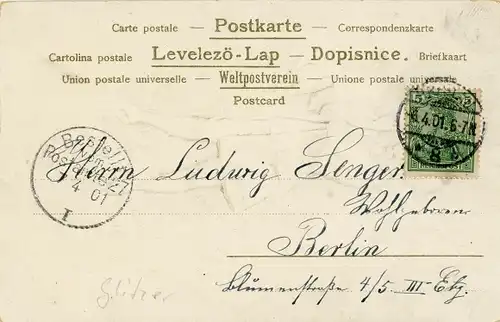 Carte postale — Postkarte — Correspondenzkarte
Cartolina postale Levelező-Lap — Dopisnice. Briefkaart
Union postale universelle — Weltpostverein — Unione postale universale
Postcard
5 5
4.01.6-7N.
Bestellt
Postamte
4 01
I
Herrn Ludwig Senger.
Wohlgeboren
Berlin
Blumenstraße 4/5 III Etg.